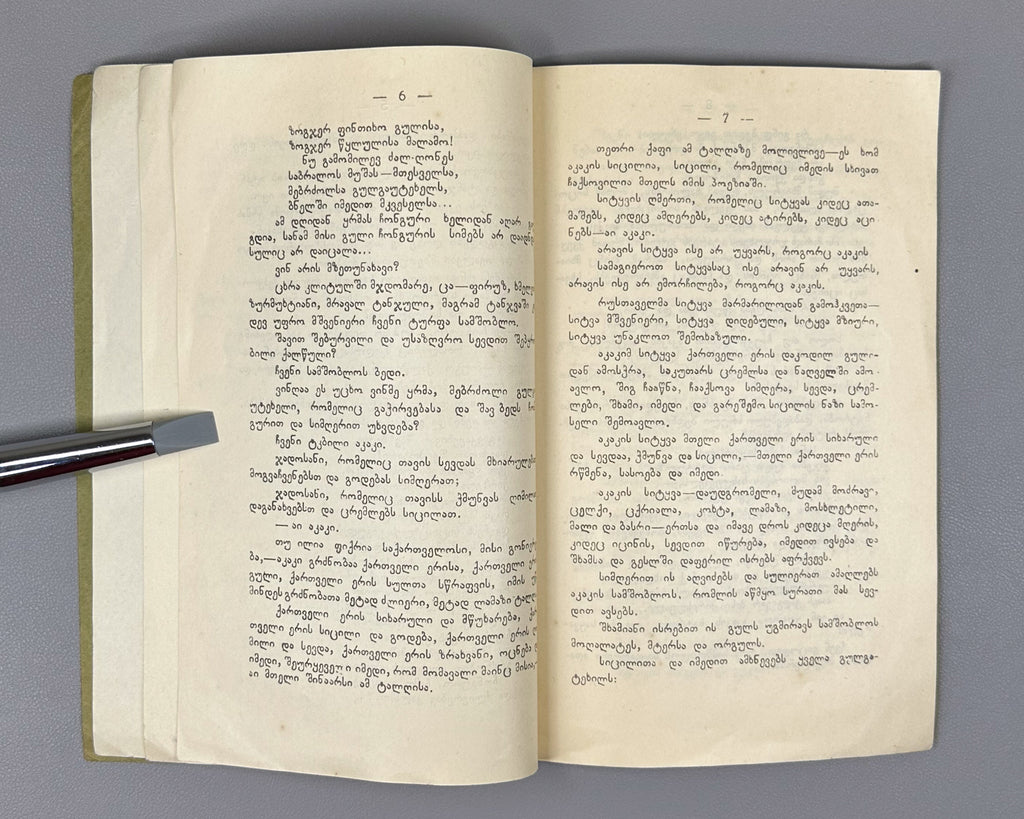 — 6 —
ზოგჯერ ფინთიხო გულისა,
ზოგჯერ წყლულისა მალამო!
ნუ გამომილევ ძალ-ღონეს
საბრალოს მუშას—მთესველსა,
მებრძოლსა გულგაუტეხელს,
ბნელში იმედით მკვესელსა...
ამ დღიდან ყრმას ჩონგური ხელიდან აღარ
გდია, სანამ მისი გული ჩონგურის სიმებს არ
სულიც არ დაიცალა...
ვინ არის მზეთუნახავი?
ცხრა კლიტულში მჯდომარე, ცა—ფირუზ,
ზურმუხტიანი, მრავალ ტანჯული, მაგრამ ტანჯვაში
დევ უფრო მშვენიერი ჩვენი ტურფა სამშობლო.
შავით შებურვილი და უსაზღვრო სევდით
ბილი ქალწული?
ჩვენი სამშობლოს ბედი.
ვინღაა ეს უცხო ვინმე ყრმა, მებრძოლი
უტეხელი, რომელიც გაჰირვებასა და შავ ბედს
გურით და სიმღერით უხვდება?
ჩვენი ტკბილი აკაკი.
ჯადოსანი, რომელიც თავის სევდას
მოგვაჩვენებსთ და გოდებას სიმღერათ;
ჯადოსანი, რომელიც თავისს ქმუნვას
დაგანახვებსთ და ცრემლებს სიცილათ.
— აი აკაკი.
თუ ილია ფიქრია საქართველოსი, მისი
ბა,—აკაკი გრძნობაა ქართველი ერისა, ქართველი
გული, ქართველი ერის სულთა სწრაფვის, იმის
მინდეს გრძნობათა მეტად ძლიერი, მეტად ლამაზი
ქართველი ერის სიხარული და მწუხარება,
თველი ერის სიცილი და გოდება, ქართველი ერის
მილი და სევდა, ქართველი ერის ზრახვანი, ოცნება
იმედი, შეურყეველი იმედი, რომ მომავალი მაინც
აი მთელი შინაარსი ამ ტალღისა.
— 7 —
თეთრი ქაფი ამ ტალღაზე მოლივლივე—ეს ხომ
აკაკის სიცილია, სიცილი, რომელიც იმედის სხივათ
ჩაქსოვილია მთელს იმის პოეზიაში.
სიტყვის ღმერთი, რომელიც სიტყვას კიდეც ათა-
მაშებს, კიდეც ამღერებს, კიდეც ატირებს, კიდეც აცი
ნებს—აი აკაკი.
არავის სიტყვა ისე არ უყვარს, როგორც აკაკის
სამაგიეროთ სიტყვასაც ისე არავინ არ უყვარს,
არავის ისე არ ემორჩილება, როგორც აკაკის.
რუსთაველმა სიტყვა მარმარილოდან გამოჰკვეთა—
სიტვა მშვენიერი, სიტყვა დიდებული, სიტყვა მზიური,
სიტყვა უნაკლოთ შემოხაზული.
აკაკიმ სიტყვა ქართველი ერის დაკოდილ გული-
დან ამოსჭრა, საკუთარს ცრემლსა და ნაღველში ამო-
ავლო, შიგ ჩააწნა, ჩააქსოვა სიმღერა, სევდა, ცრემ-
ლები, შხამი, იმედი და გარეშემო სიცილის ნაზი სამო-
სელი შემოავლო.
აკაკის სიტყვა მთელი ქართველი ერის სიხარული
და სევდაა, ქმუნვა და სიცილი,—მთელი ქართველი ერის
რწმენა, სასოება და იმედი.
აკაკის სიტყვა—დაუდგრომელი, მუდამ მოძრავი,
ცელქი, ცქრიალა, კოხტა, ლამაზი, მოსხლეტილი,
მალი და ბასრი—ერთსა და იმავე დროს კიდეცა მღერის,
კიდეც იცინის, სევდით იწურება, იმედით ივსება და
შხამსა და გესლში დაფერილ ისრებს აფრქვევს.
სიმღერით ის აღვიძებს და სულიერათ ამაღლებს
აკაკის სამშობლოს, რომლის აწმყო სურათი მას სევ-
დით ავსებს.
შხამიანი ისრებით ის გულს უგმირავს სამშობლოს
მოღალატეს, მტერსა და ორგულს.
სიცილითა და იმედით ამხნევებს ყველა გულგა-
ტეხილს: